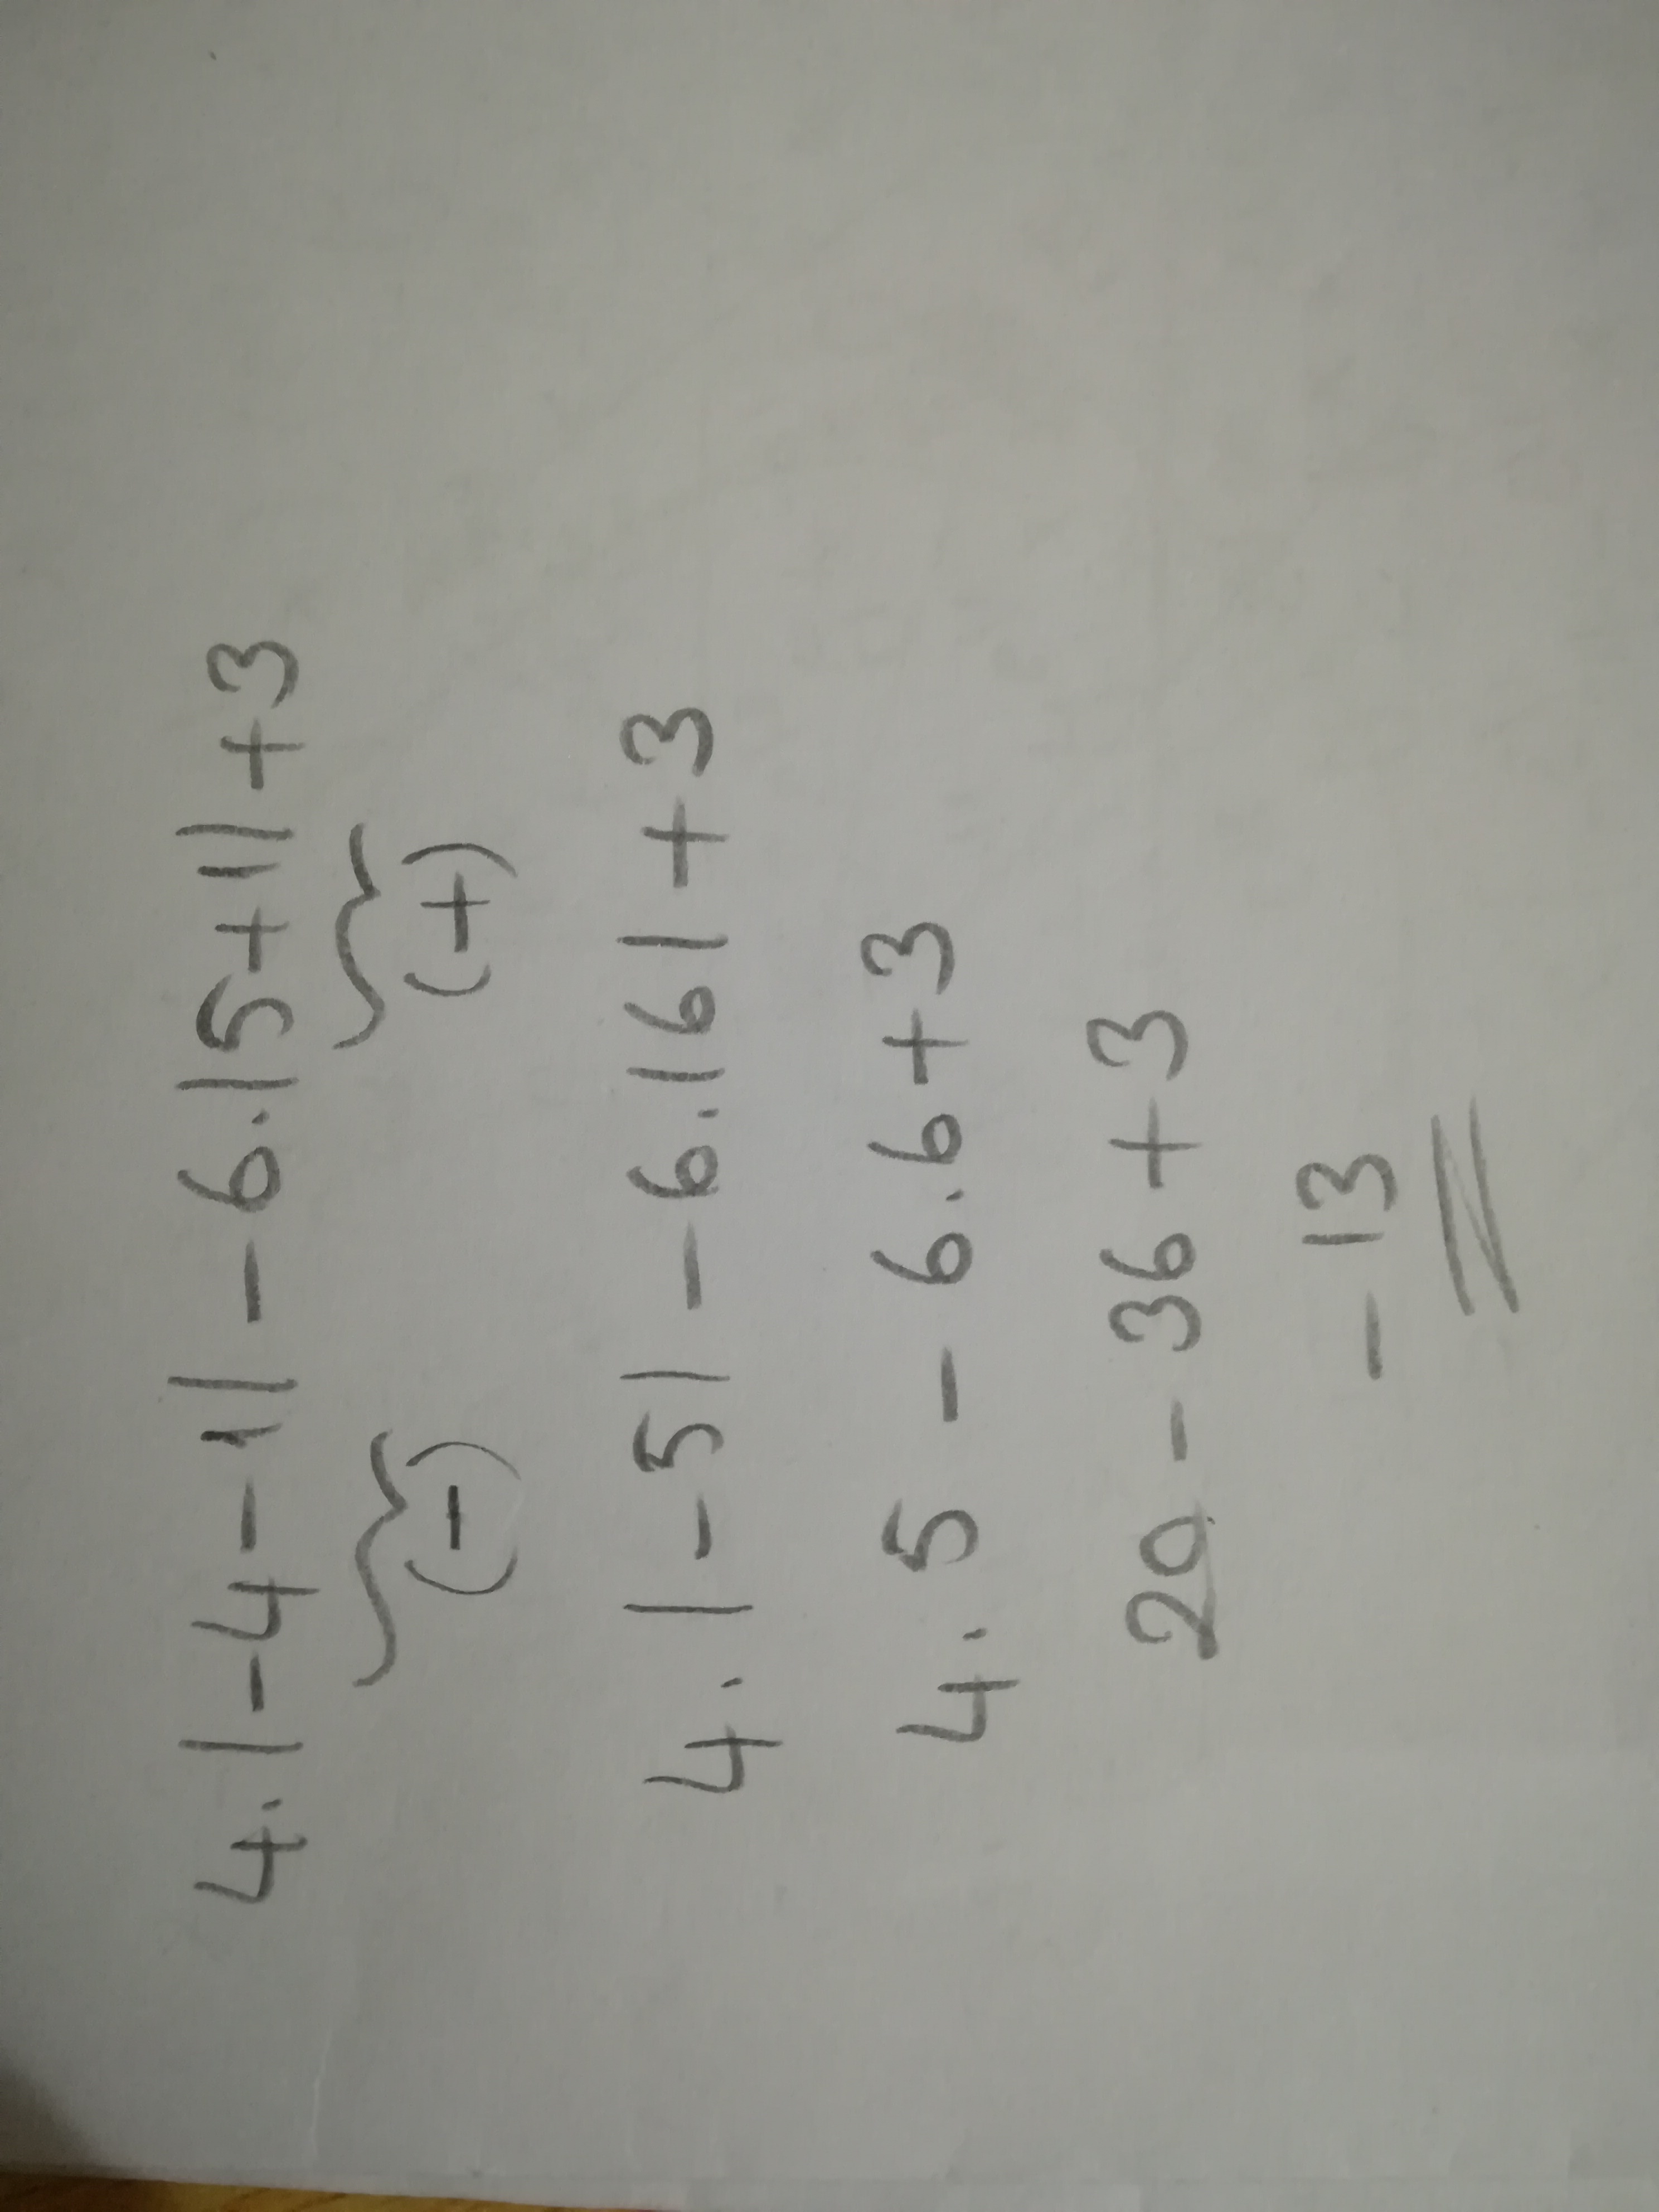 4.|-4-1| - 6.|5+1| +3
(-) (+)
4.|-5| - 6.|6| +3
4.5 - 6.6+3
20 - 36 +3
- 13